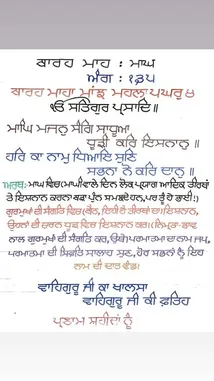 ਬਾਰਹ ਮਾਹ : ਮਾਘ
ਅੰਗ : ੧੩੫
ਬਾਰਹ ਮਾਹਾ ਮਾਂਝ ਮਹਲਾ ਪ ਘਰੁ ੪
ੴ ਸਤਿਗੁਰ ਪ੍ਰਸਾਦਿ॥
ਮਾਘਿ ਮਜਨੁ ਸੰਗਿ ਸਾਧੂਆ
ਧੂੜੀ ਕਰਿ ਇਸਨਾਨੁ॥
ਹਰਿ ਕਾ ਨਾਮੁ ਧਿਆਇ ਸੁਣਿ
ਸਭਨਾ ਨੋ ਕਰਿ ਦਾਨੁ॥
ਅਰਥ: ਮਾਘ ਵਿਚ(ਮਾਘੀ ਵਾਲੇ ਦਿਨ ਲੋਕ ਪ੍ਰਯਾਗ ਆਦਿਕ ਤੀਰਥਾਂ
ਤੇ ਇਸਨਾਨ ਕਰਨਾ ਬੜਾ ਪੁੰਨ ਸਮਝਦੇ ਹਨ, ਪਰ ਤੂੰ ਹੇ ਭਾਈ!)
ਗੁਰਮੁਖਾਂ ਦੀ ਸੰਗਤਿ ਵਿਚ(ਬੈਠ, ਇਹੀ ਹੈ ਤੀਰਥਾਂ ਦਾ)ਇਸਨਾਨ,
ਉਹਨਾਂ ਦੀ ਚਰਨ ਧੂੜ ਵਿਚ ਇਸਨਾਨ ਕਰ।(ਨਿਮ੍ਰਤਾ-ਭਾਵ
ਨਾਲ ਗੁਰਮੁਖਾਂ ਦੀ ਸੰਗਤਿ ਕਰ, ਉਥੇ)ਪਰਮਾਤਮਾ ਦਾ ਨਾਮ ਜਪ,
ਪਰਮਾਤਮਾ ਦੀ ਸਿਫ਼ਤਿ ਸਾਲਾਹ ਸੁਣ, ਹੋਰ ਸਭਨਾਂ ਨੂੰ ਇਹ
ਨਾਮ ਦੀ ਦਾਤ ਵੰਡ।
ਵਾਹਿਗੁਰੂ ਜੀ ਕਾ ਖਾਲਸਾ
ਵਾਹਿਗੁਰੂ ਜੀ ਕੀ ਫ਼ਤਿਹ
ਪ੍ਰਣਾਮ ਸ਼ਹੀਦਾਂ ਨੂੰ